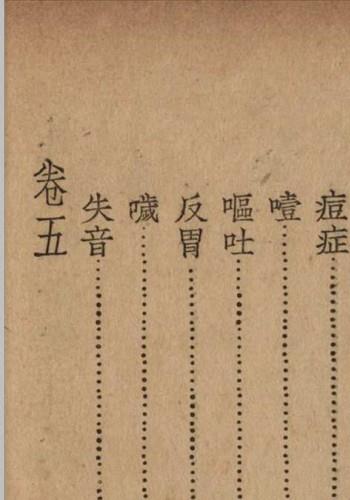 痘症
噎
嘔吐
反胃
噦
失音
卷五